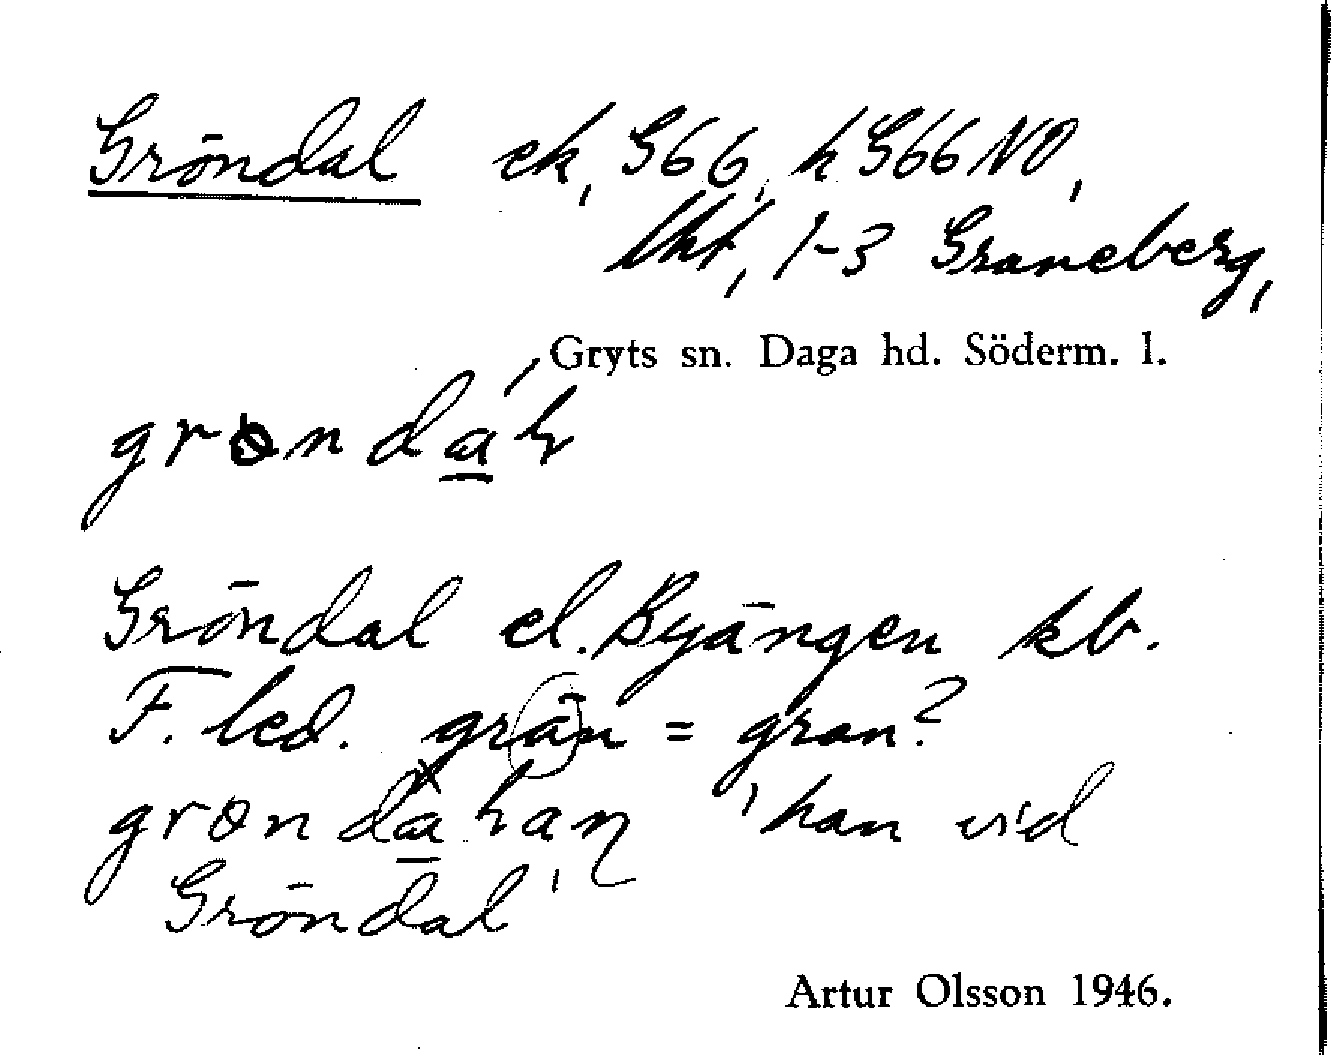 Gröndal ek, G66, h G66NO,
lht, 1-3 Graneberg,
Gryts sn. Daga hd. Söderm. l.
grøndaɫ
Gröndal el. Byängen kb.
F. led. grän = gran?
grøndaɫan 'han vid
Gröndal'
Artur Olsson 1946.